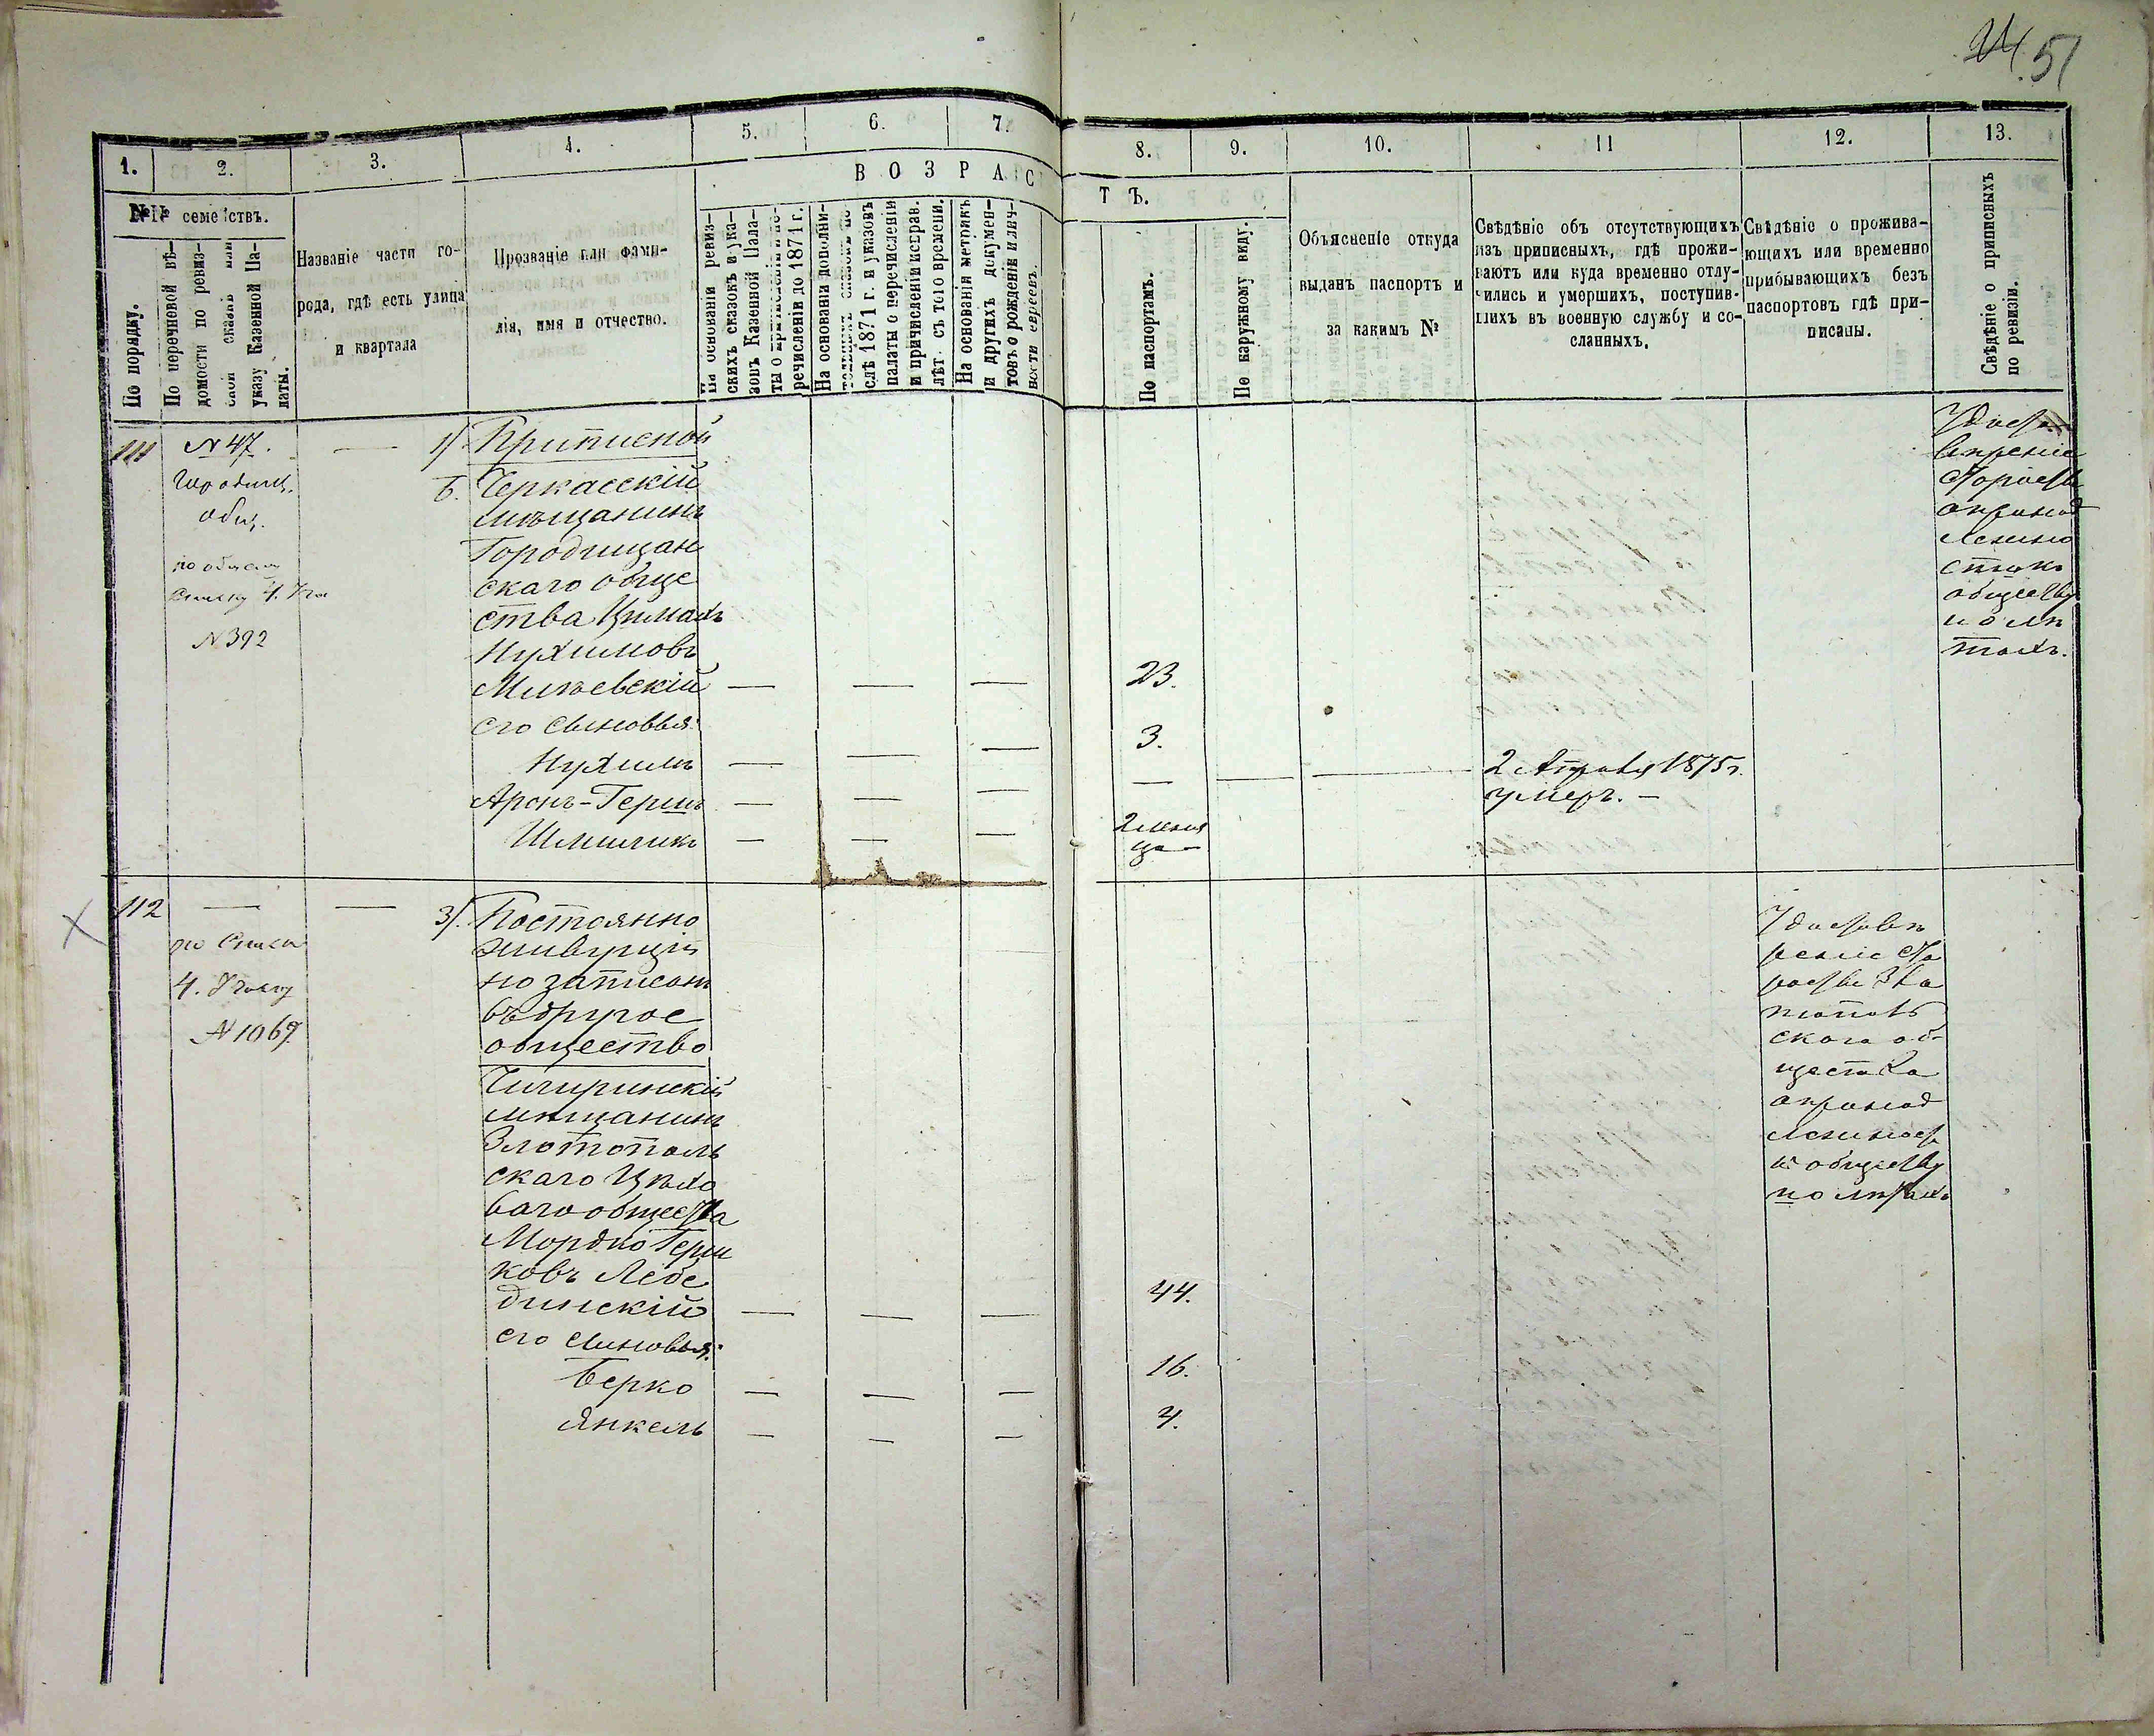 51
1.
2.
3.
4.
5.
6.
7.
8.
9.
10.
11
12.
13.
№№ семействъ.
По порядку.
По перечневой вѣ-
домости по ревиз-
указу Казенной Па-
латы.
Названіе части го-
рода, гдѣ есть улица
и квартала
Прозваніе или фами-
лія, имя и отчество.
ВОЗРАС
ТЪ.
На основаніи ревиз-
скихъ сказокъ и ука-
зовъ Казенной Пала-
речисленіи до 1871 г.
На основаніи дополни-
слѣ 1871 г. и указовъ
палаты о перечисленіи
и причисленіи исправ.
лѣт. съ того времени.
На основаніи метрикъ
и другихъ докумен-
товъ о рожденіи и лич-
ности евреевъ.
По паспортамъ.
По наружному виду.
Объясненіе откуда
выданъ паспортъ и
за какимъ №
Свѣдѣніе объ отсутствующихъ
изъ приписныхъ, гдѣ прожи-
ваютъ или куда временно отлу-
чились и умершихъ, поступив-
шихъ въ военную службу и со-
сланныхъ.
Свѣдѣніе о прожива-
ющихъ или временно
прибывающихъ безъ
паспортовъ гдѣ при-
писаны.
Свѣдѣніе о приписныхъ
по ревизіи.
111
N 47.
Городищ.
Общ.
по общему
списку 4. Уча
N 392
1/ Приписной
Б. Черкасскій
мѣщанинъ
Городищан
скаго обще
ства Цималъ
Нухимовъ
Милѣевскій — — — 23.
его сыновья:
Нухимъ — — — 3.
Аронъ-Гершъ — — — —
2 Апрѣля 1875 г.
умеръ. —
Шмиликъ — — — 2 меся
ца —
Удосто
вѣреніе
Старосты
принад
лежно
сти къ
обществу
и о лѣ
тахъ.
112
по списку
4. Участку
N 1069
3/. Постоянно
живущій
но записан
въ другое
общество
Чигиринскій
мѣщанинъ
Злотополь
скаго Цѣхо
ваго общества
Мордко Герш
ковъ Лебе
динскій — — — 44.
его сыновья:
Берко — — — 16.
Янкель — — — 4.
Удостовѣ
реніе Ста
росты Зла
топольв
скаго об
щества
о принад
лежност
къ обществу
и о лѣтахъ